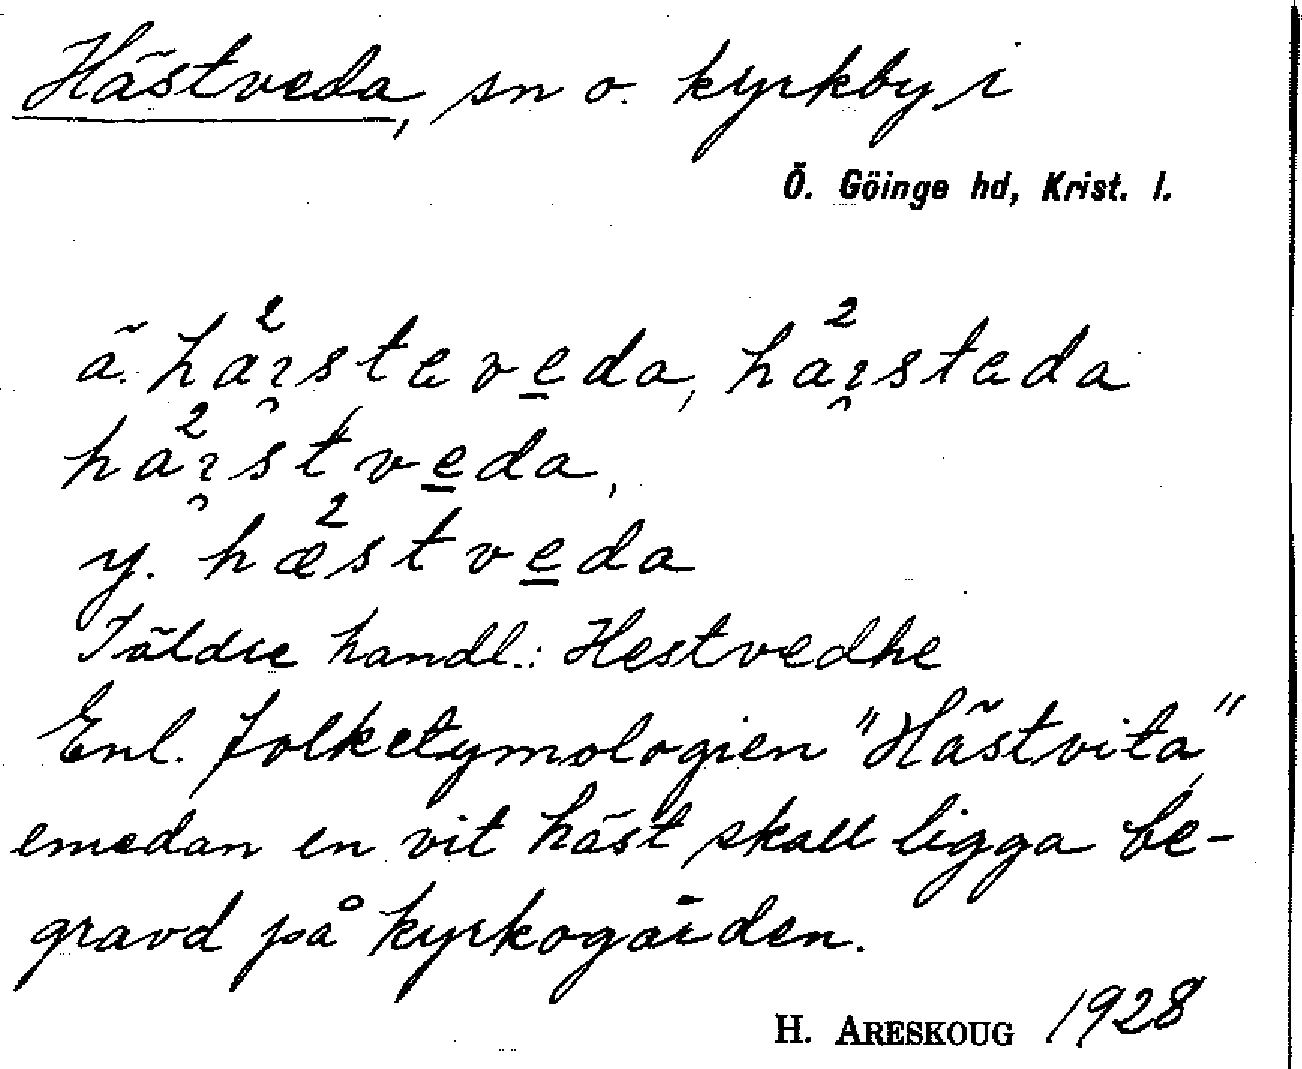 Hästveda, sn o. kyrkby i
Ö. Göinge hd, Krist. l.
ä. ha²ɿ̯steveda, ha²ɿ̯steda
ha²ɿ̯stveda,
y. hæ²stveda
I äldre handl.: Hestvedhe
Enl. folketymologien "Hästvita,"
emedan en vit häst skall ligga be-
gravd på kyrkogården.
H. ARESKOUG 1928